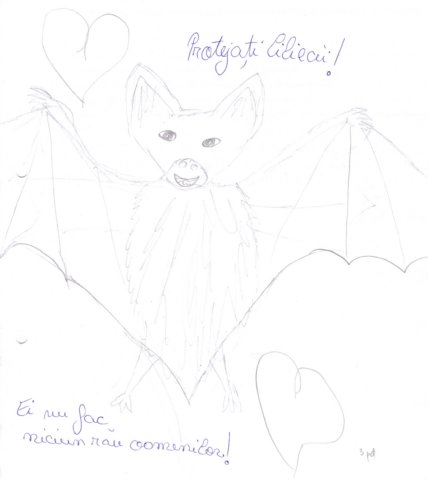 Protejați liliecii!
Ei nu fac
niciun rău oamenilor!
3 pct